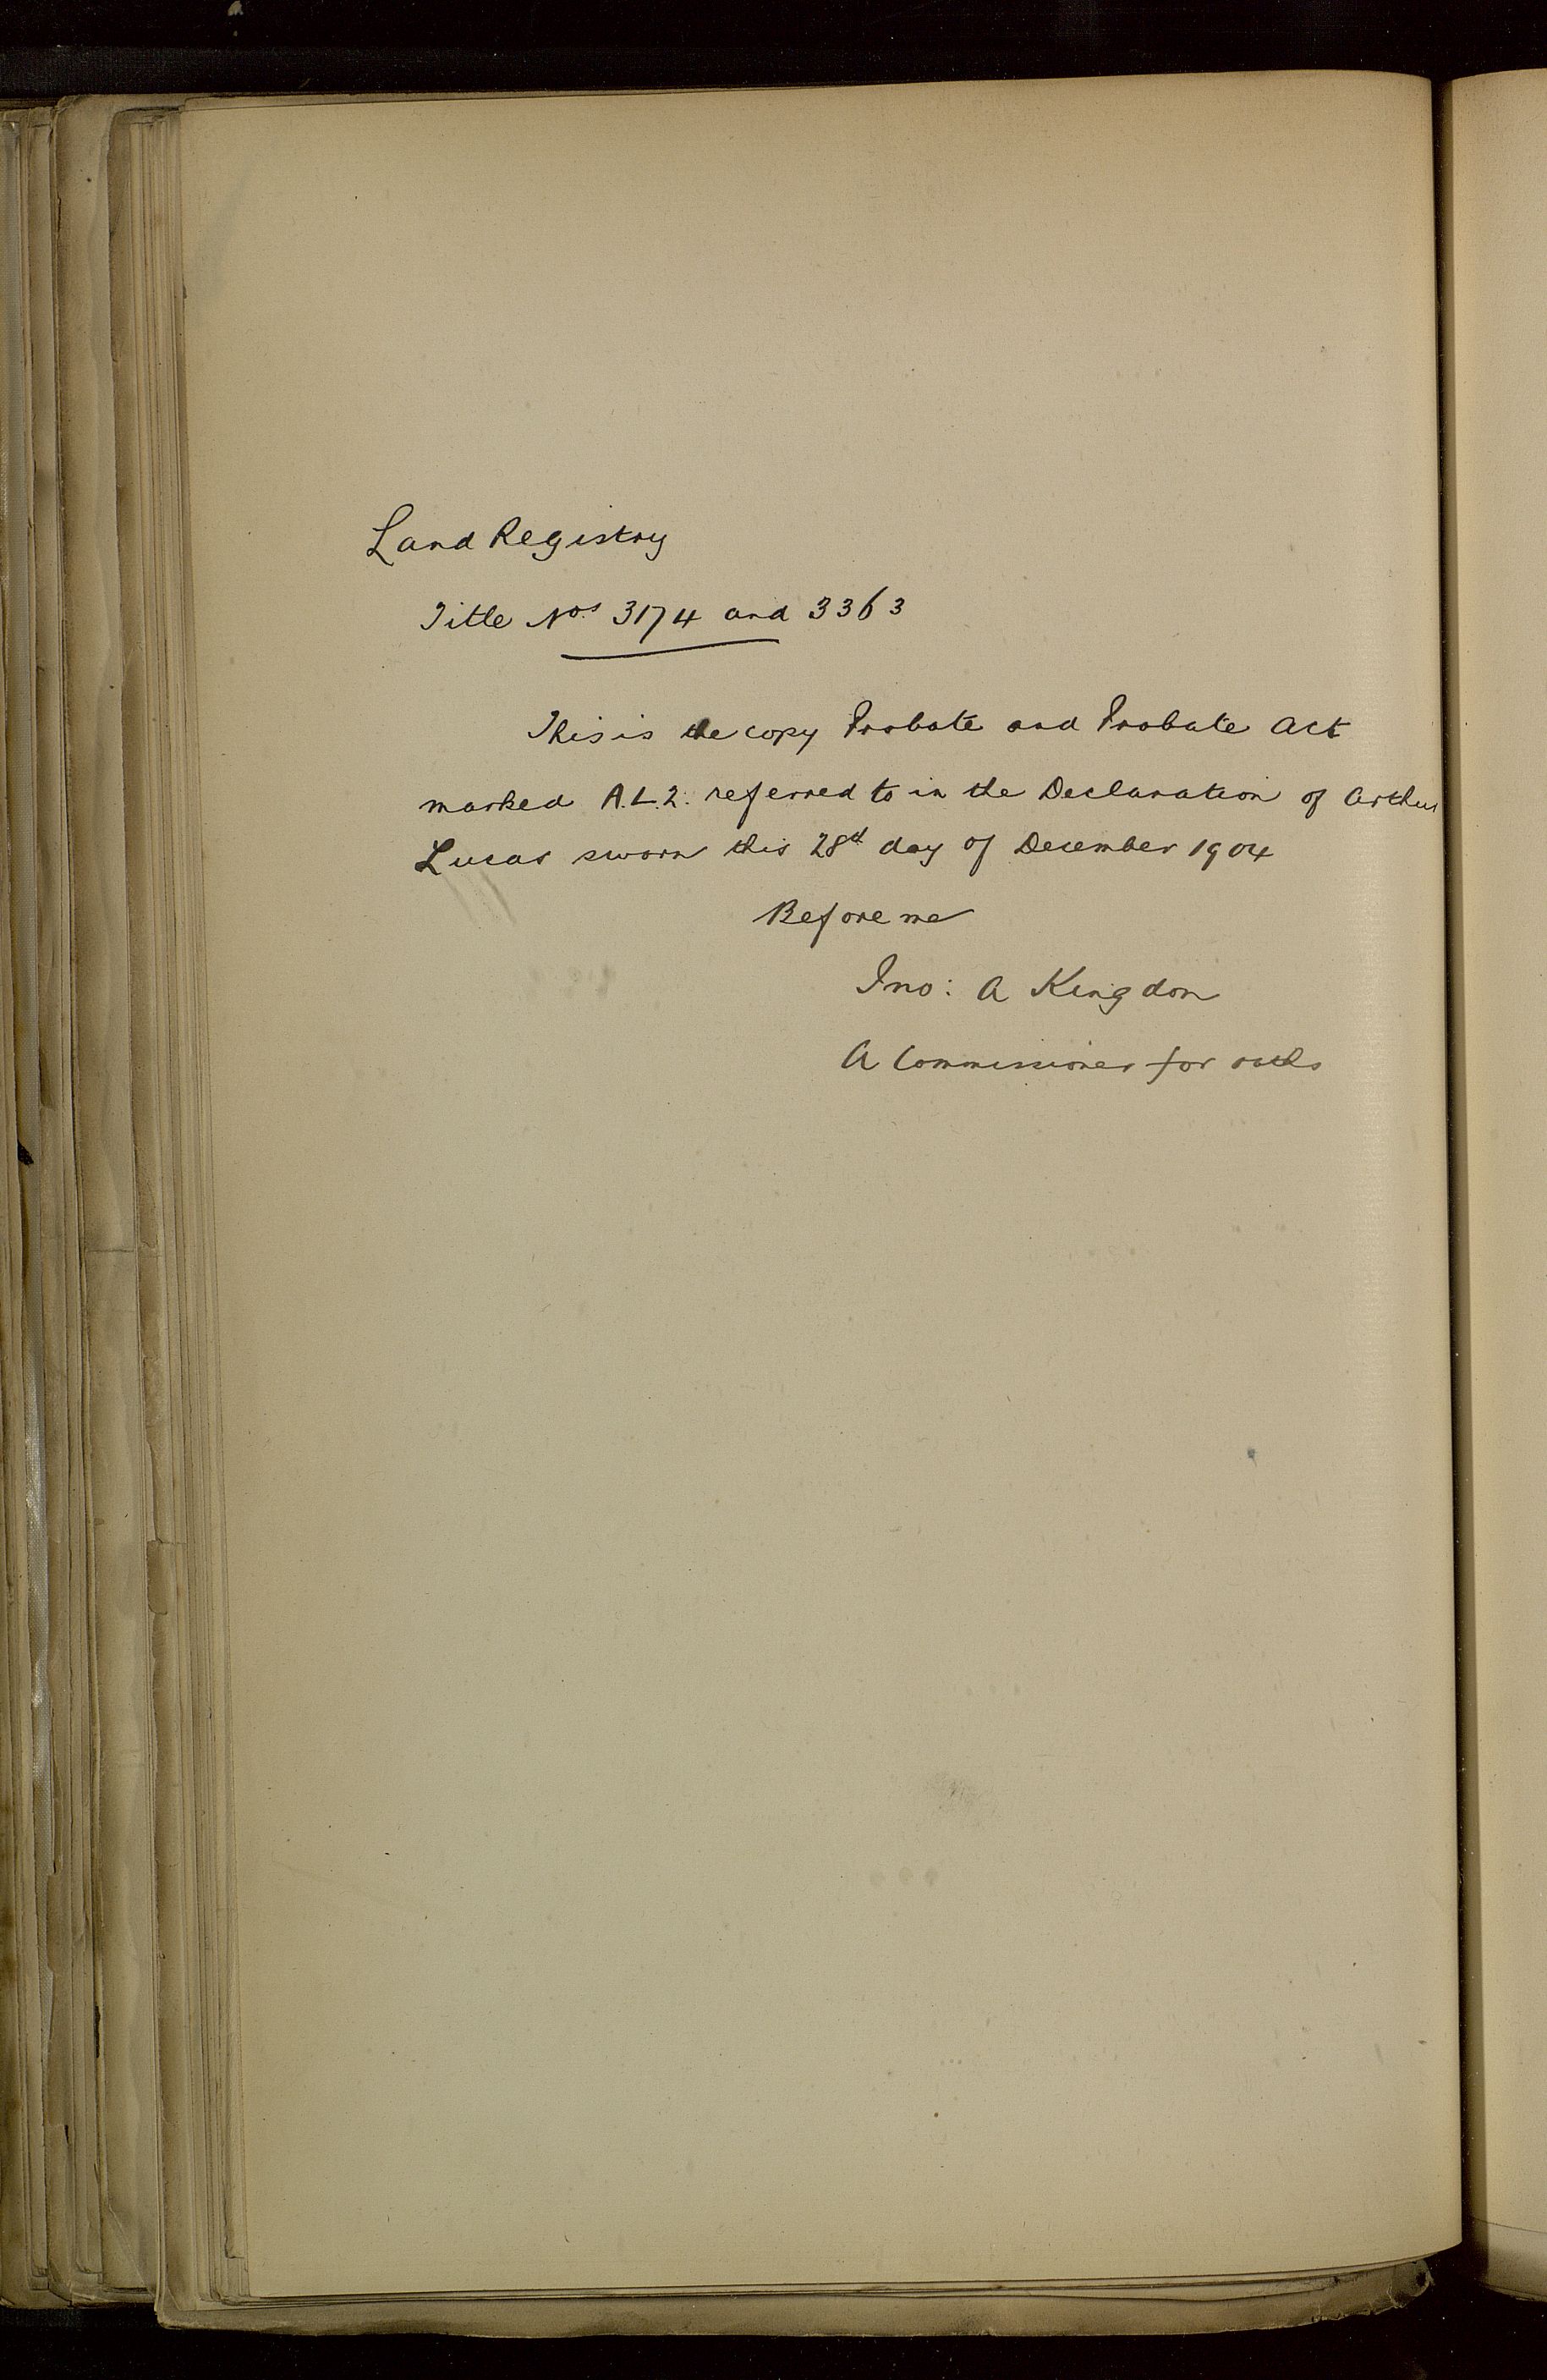 Land Registry
Title Nos 3174 and 3363
This is the copy Probate and Probate Act
marked A.L.2. referred to in the Declaration of Arthur
Lucas sworn this 28th day of December 1904
Before me
Jno: A Kingdon
A Commissioner for oaths